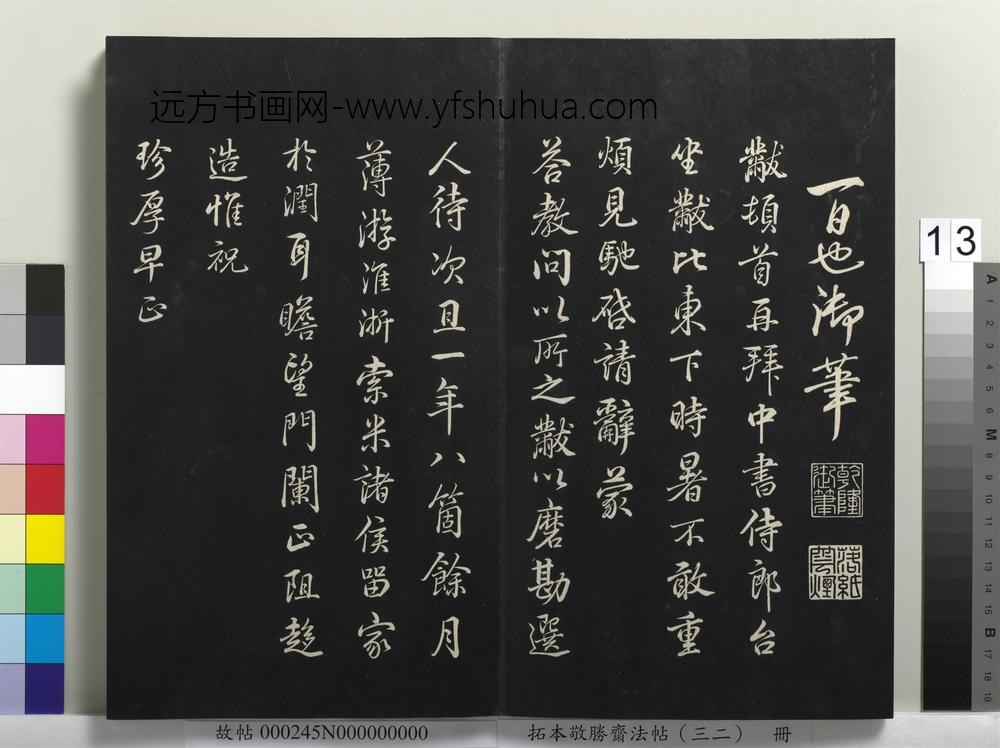 远方书画网-www.yfshuhua.com
一日也御筆
乾隆御筆
落紙雲煙
黻頓首再拜中書侍郎台
坐黻比東下時暑不敢重
煩見馳啓請辭蒙
荅教問以所之黻以磨勘選
人待次且一年八箇餘月
薄游淮浙索米諸侯畱家
於潤耳瞻望門闌正阻趍
造惟祝
珍厚早正
13
A 1 2 3 4 5 6 M 8 9 10 11 12 13 14 15 B 17 18 19
故帖 000245N000000000
拓本敬勝齋法帖（三二） 冊